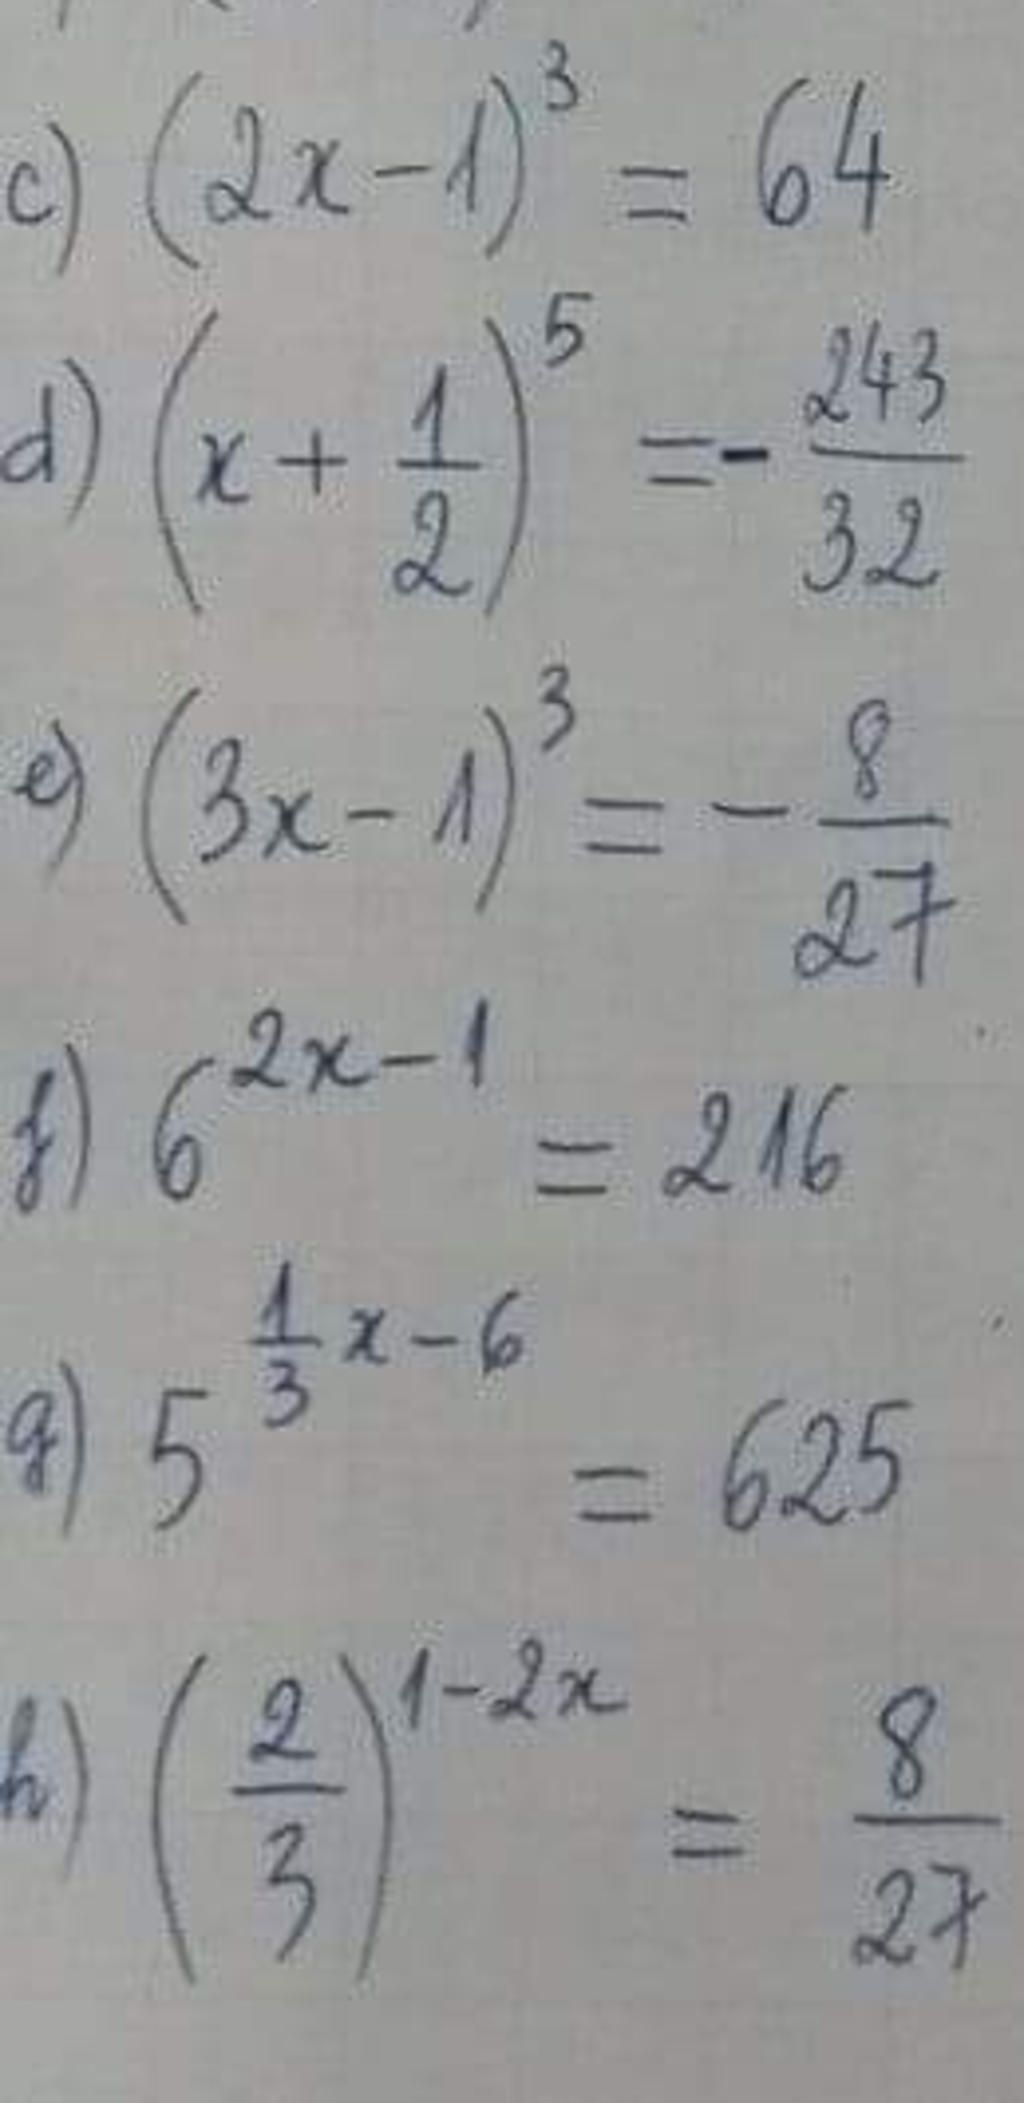 c) (2x-1)³ = 64
d) (x + 1/2)⁵ = - 243/32
e) (3x - 1)³ = - 8/27
f) 6^(2x-1) = 216
g) 5^(1/3 x - 6) = 625
h) (2/3)^(1-2x) = 8/27